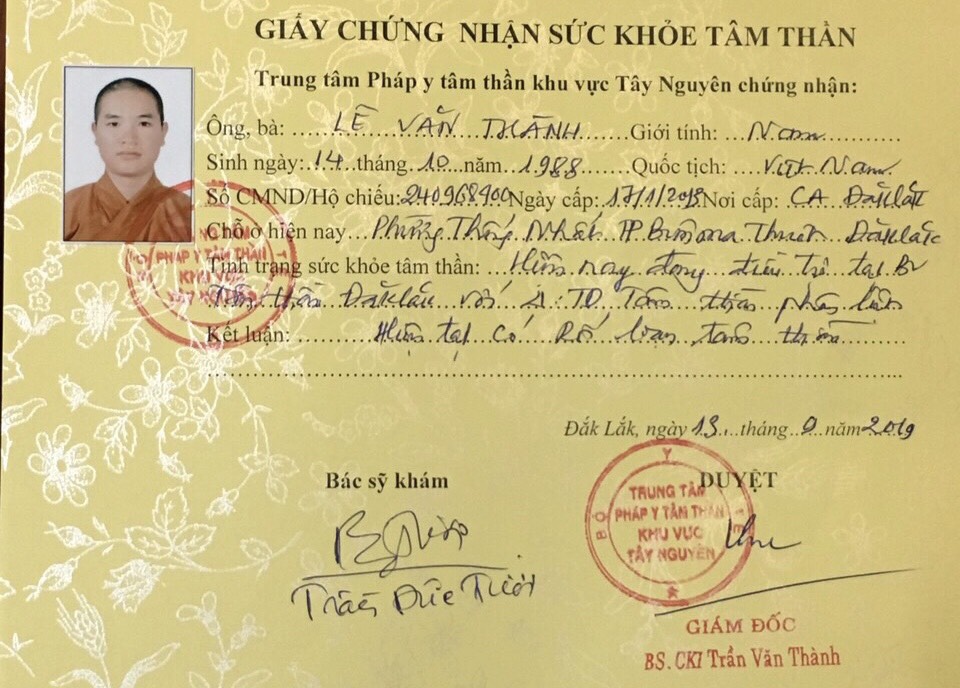 GIẤY CHỨNG NHẬN SỨC KHỎE TÂM THẦN
Trung tâm Pháp y tâm thần khu vực Tây Nguyên chứng nhận:
Ông, bà: LÊ VĂN THÀNH Giới tính: Nam
Sinh ngày: 14 tháng 10 năm 1988 Quốc tịch: Việt Nam
Số CMND/Hộ chiếu: 240968900 Ngày cấp: 17/1/2013 Nơi cấp: CA Đăklăk
Chỗ ở hiện nay Phường Thống Nhất TP Buôn Ma Thuột Đăklăk
Tình trạng sức khỏe tâm thần: Hiện nay đang điều trị tại BV
Tâm thần Đăklăk với Tâm thần phân liệt
Kết luận: Hiện tại có Rối loạn tâm thần
Đắk Lắk, ngày 13 tháng 9 năm 2019
Bác sỹ khám
DUYỆT
TRUNG TÂM
PHÁP Y TÂM THẦN
KHU VỰC
TÂY NGUYÊN
BỘ Y TẾ
Trần Đức
GIÁM ĐỐC
BS.CKI Trần Văn Thành
PHÁP Y TÂM THẦN
KHU VỰC